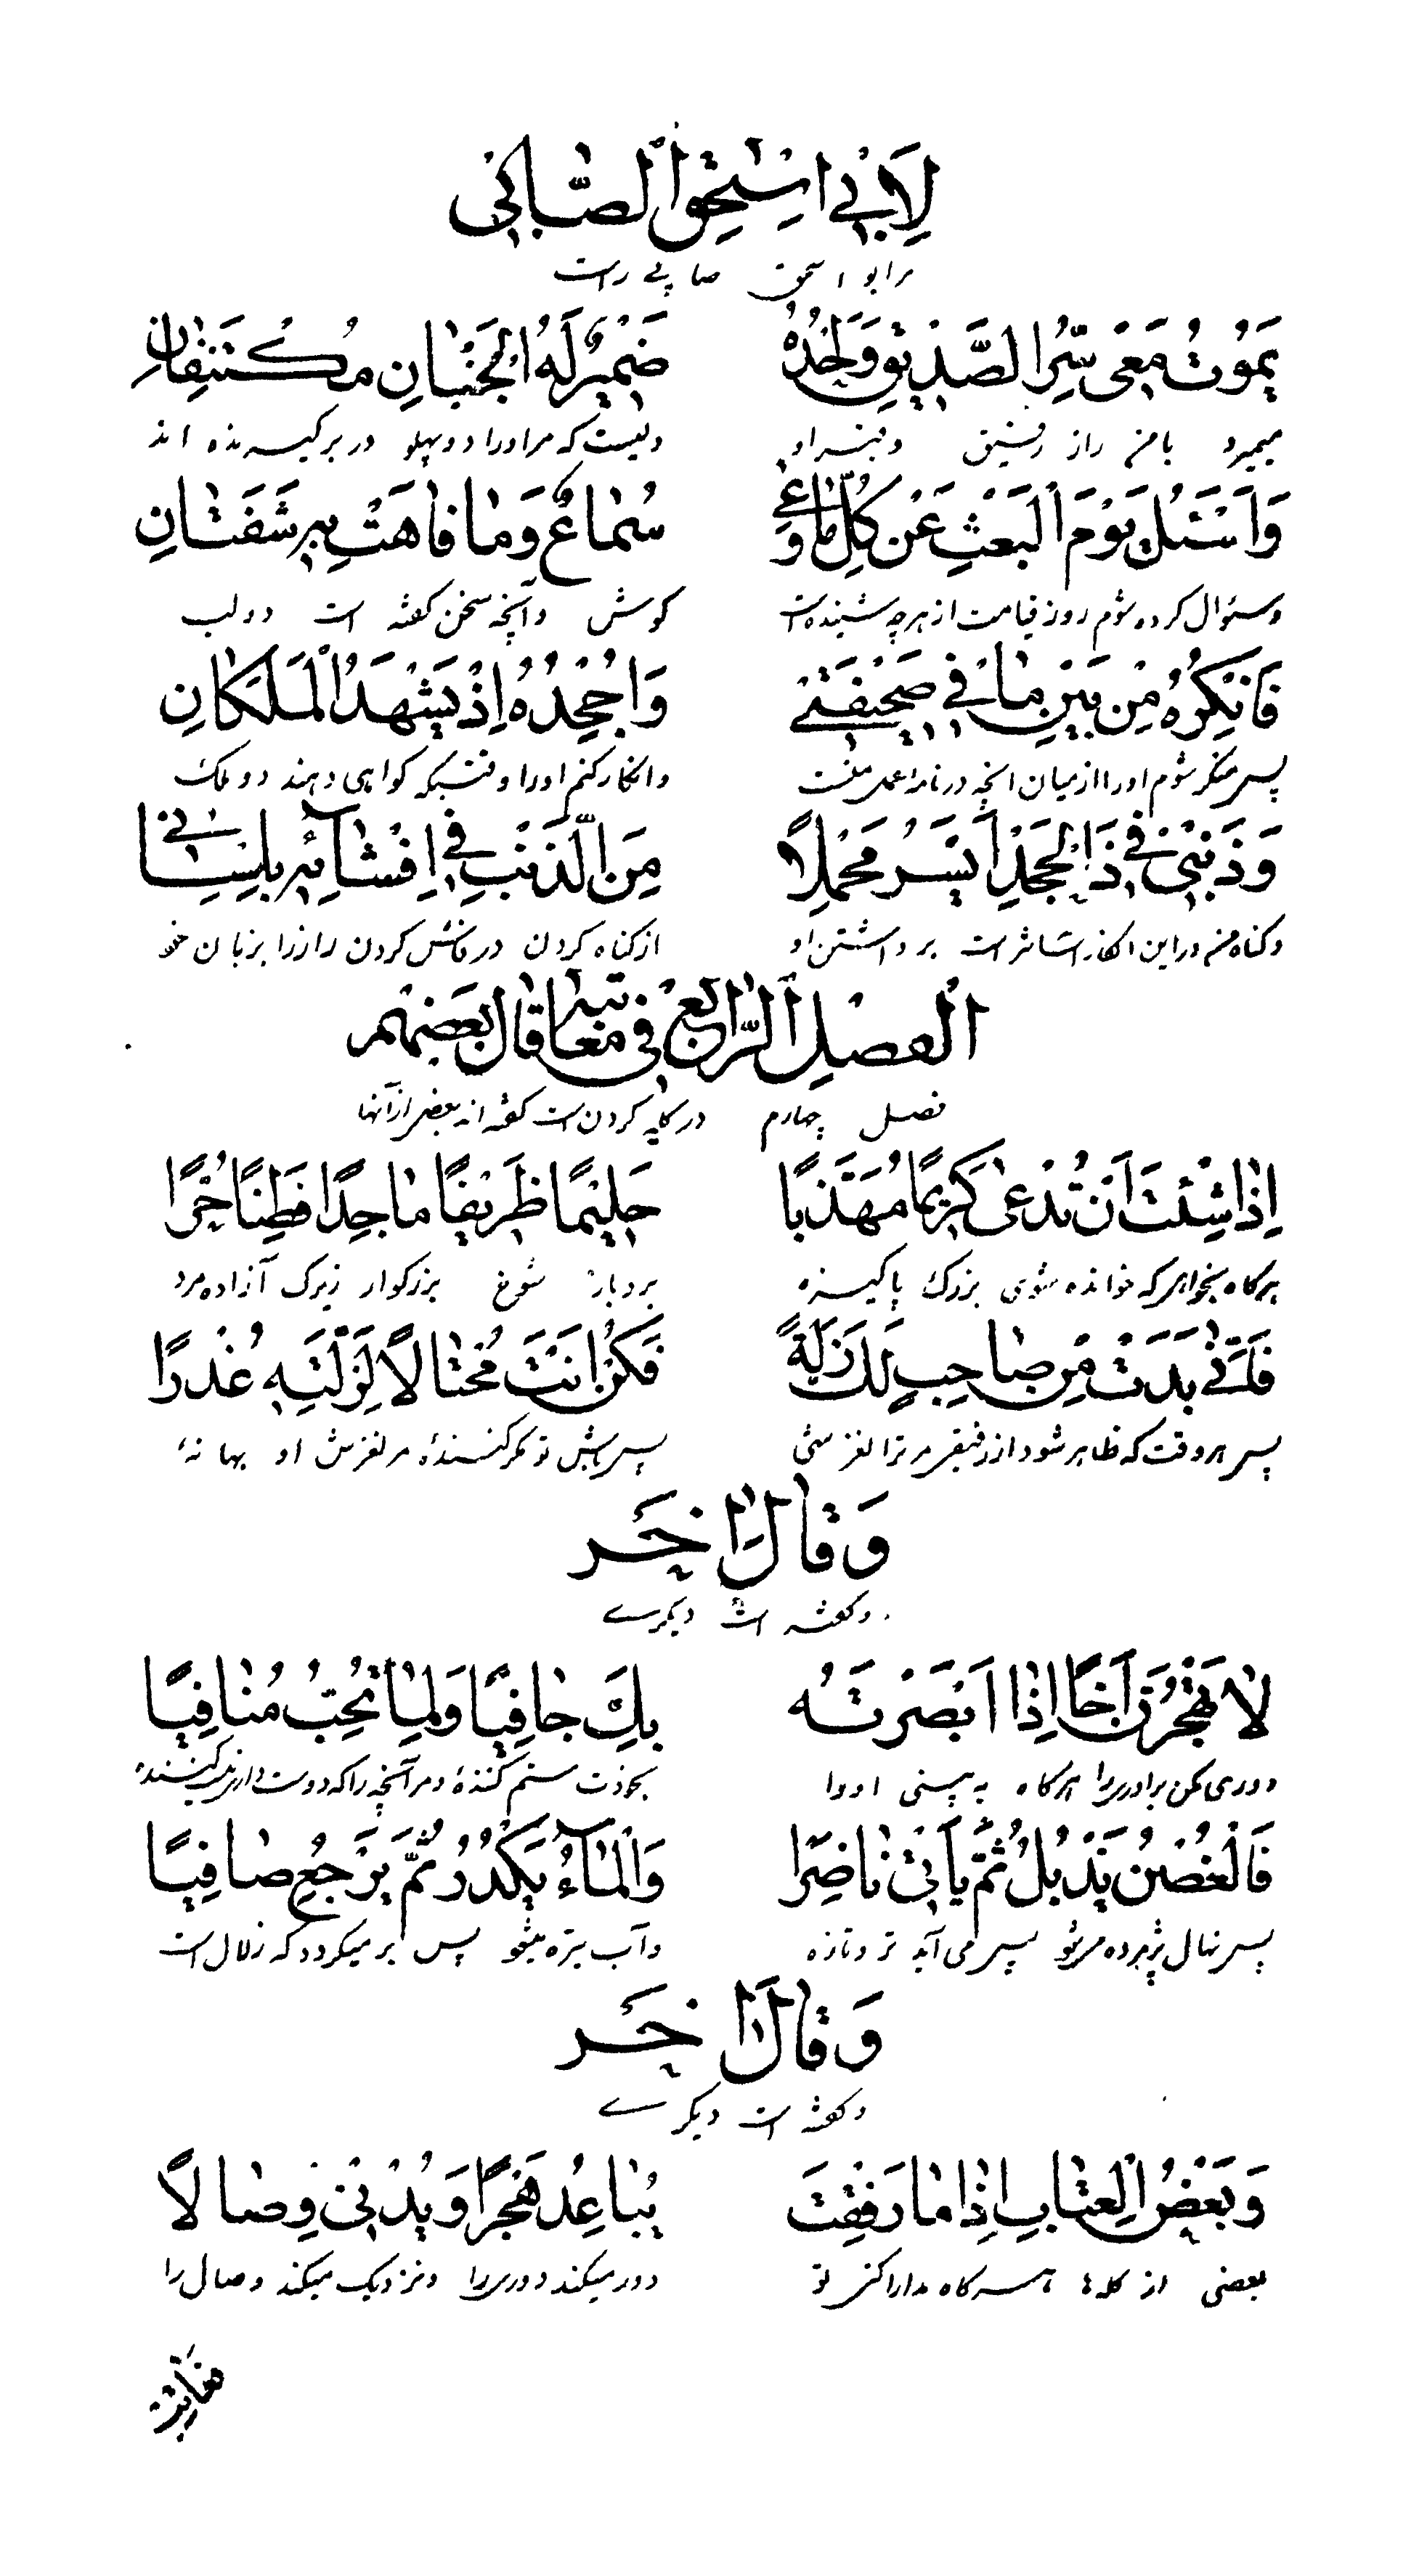 لِأَبِي اسْحٰقَ الصَّابِي
مر ابو اسحق صابی راست
يَمُوتُ مَعِي سِرُّ الصَّدِيقِ وَلَحْدُهُ ضَمِيرٌ لَهُ الْجَنْبَانِ مُكْتَنِفَانِ
میمیرد با من راز رفیق و قبر او دلیست که مر او را دو پهلو در بر گیرنده اند
وَاُسْئَلُ يَوْمَ الْبَعْثِ عَنْ كُلِّ مَا وَعٰى سَمَاعٌ وَمَا فَاهَتْ بِهِ شَفَتَانِ
و سئوال کرده شوم روز قیامت از هر چه شنیده است کوش و آنچه سخن کفته است دو لب
فَاُنْكِرُهُ مِنْ بَيْنِ مَا فِي صَحِيفَتِي وَاَجْحَدُهُ اِذْ يَشْهَدُ الْمَلَكَانِ
پس منکر شوم او را از میان انچه در نامه اعمال منست و انکار کنم او را وقتیکه کواهی دهند دو ملک
وَذَنْبِي فِي ذَا الْجَحْدِ اَيْسَرُ مَحْمَلًا مِنَ الذَّنْبِ فِي اِفْشَائِهِ بِلِسَانِي
و کناه من در این انکار اسانتر است برداشتن او از کناه کردن در فاش کردن راز را بزبان خود
اَلْفَصْلُ الرَّابِعُ فِي مُعَاتَبَةٍ قَالَ بَعْضُهُمْ
فصل چهارم در کله کردن است کفته اند بعضی از آنها
اِذَا شِئْتَ اَنْ تُدْعٰى كَرِيمًا مُهَذَّبًا حَلِيمًا ظَرِيفًا مَاجِدًا فَطِنًا حُرًّا
هر کاه بخواهی که خوانده شوی بزرك پاکیزه بردبار شوخ بزرکوار زیرك آزاده مرد
فَمَتٰى بَدَتْ مِنْ صَاحِبٍ لَكَ زَلَّةٌ فَكُنْ اَنْتَ مُحْتَالًا لِزَلَّتِهِ عُذْرًا
پس هر وقت که ظاهر شود از رفیق مر ترا لغزشی پس باش تو مکر کننده مر لغزش او بهانه
وَقَالَ اٰخَرُ
و کفته است دیکری
لَا تَهْجُرَنْ اَخًا اِذَا اَبْصَرْتَهُ بِكَ جَافِيًا وَلِمَا تُحِبُّ مُنَافِيًا
دوری مکن برادری را هر کاه به بینی او را بخودت ستم کننده و مر آنچه را که دوست داری نفی کننده
فَالْغُصْنُ يَذْبُلُ ثُمَّ يَأْتِي نَاضِرًا وَالْمَاءُ يَكْدُرُ ثُمَّ يَرْجِعُ صَافِيًا
پس نهال پژمرده میشود پس می آید تر و تازه و آب تیره میشود پس بر میکردد که زلال است
وَقَالَ اٰخَرُ
و کفته است دیکری
وَبَعْضُ الْعِتَابِ اِذَا مَا رَفِقْتَ يُبَاعِدُ هَجْرًا وَيُدْنِي وِصَالًا
بعضی از کله ها هر کاه مدارا کنی تو دور میکند دوری را و نزدیك میکند وصال را